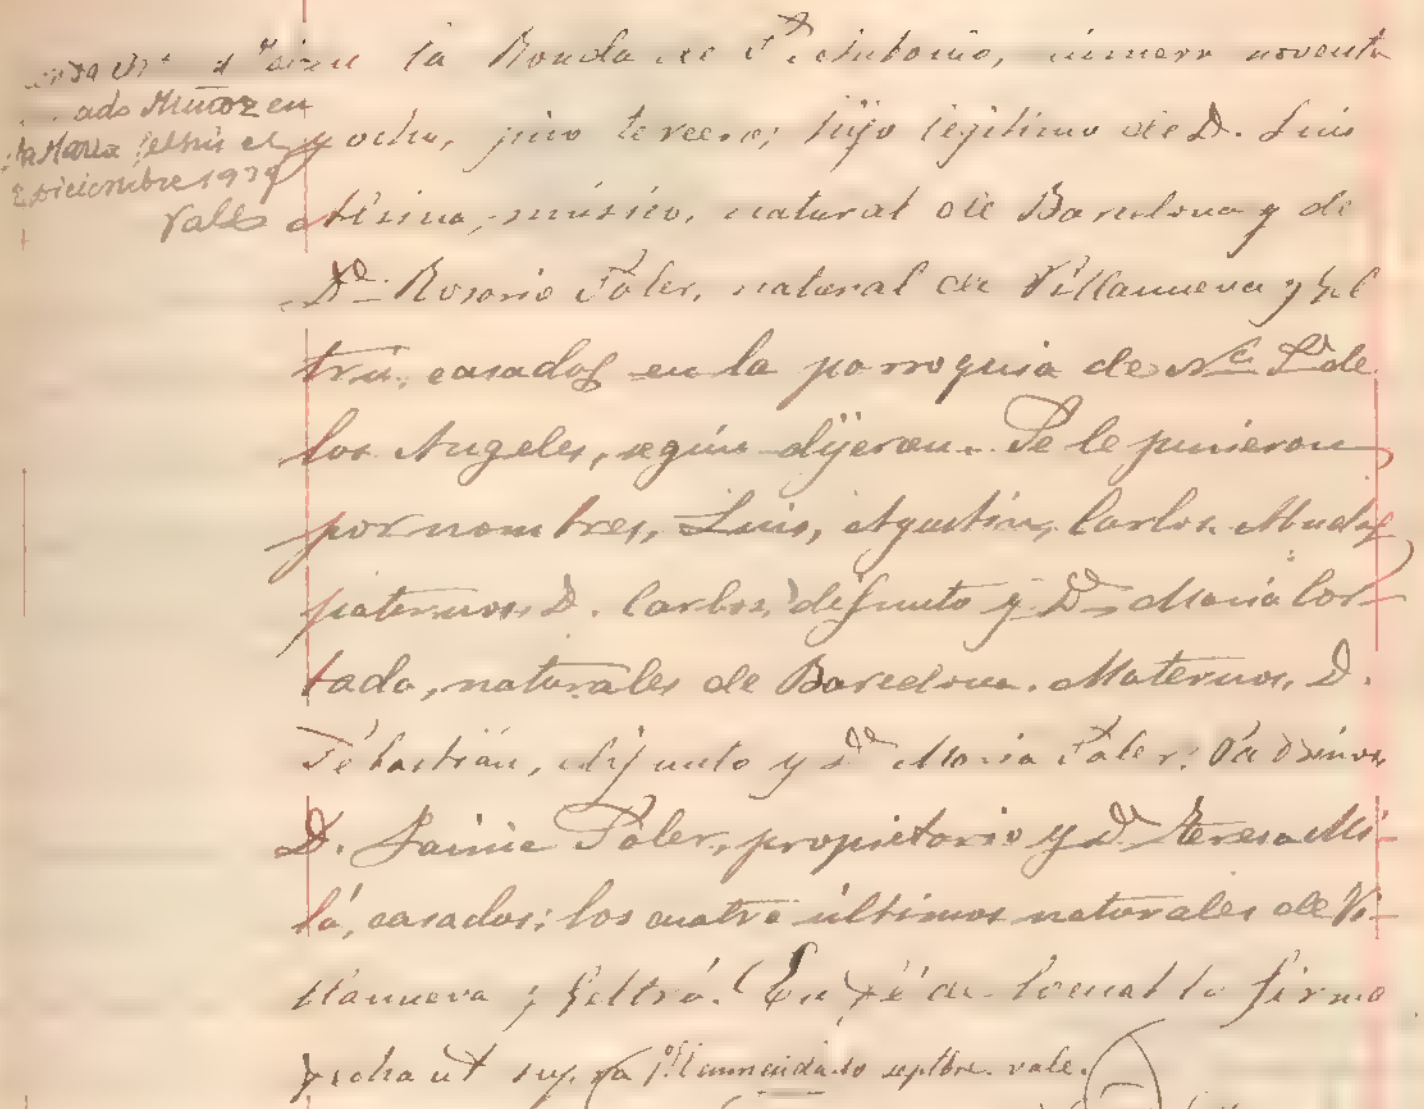 ado Muñoz en
Diciembre 1979
Valls
la Ronda de Sn. Antonio, número noventa
y ocho, piso tercero; hijo legítimo de D. Luis
músico, natural de Barcelona y de
Dª Rosario Soler, natural de Villanueva y Gel
trú, casados en la parroquia de Nª Sª de
los Angeles, según dijeron. Se le pusieron
por nombres, Luis, Agustín, Carlos. Abuelos
paternos, D. Carlos, difunto y Dª María Cor-
tada, naturales de Barcelona. Maternos, D.
Sebastián, difunto y Dª María Soler. Padrinos
D. Jaime Soler, propietario y Dª Teresa Mi-
lá, casados; los cuatro últimos naturales de Vi-
llanueva y Geltrú. En fé de lo cual lo firmo
fecha ut supra septbre. vale.